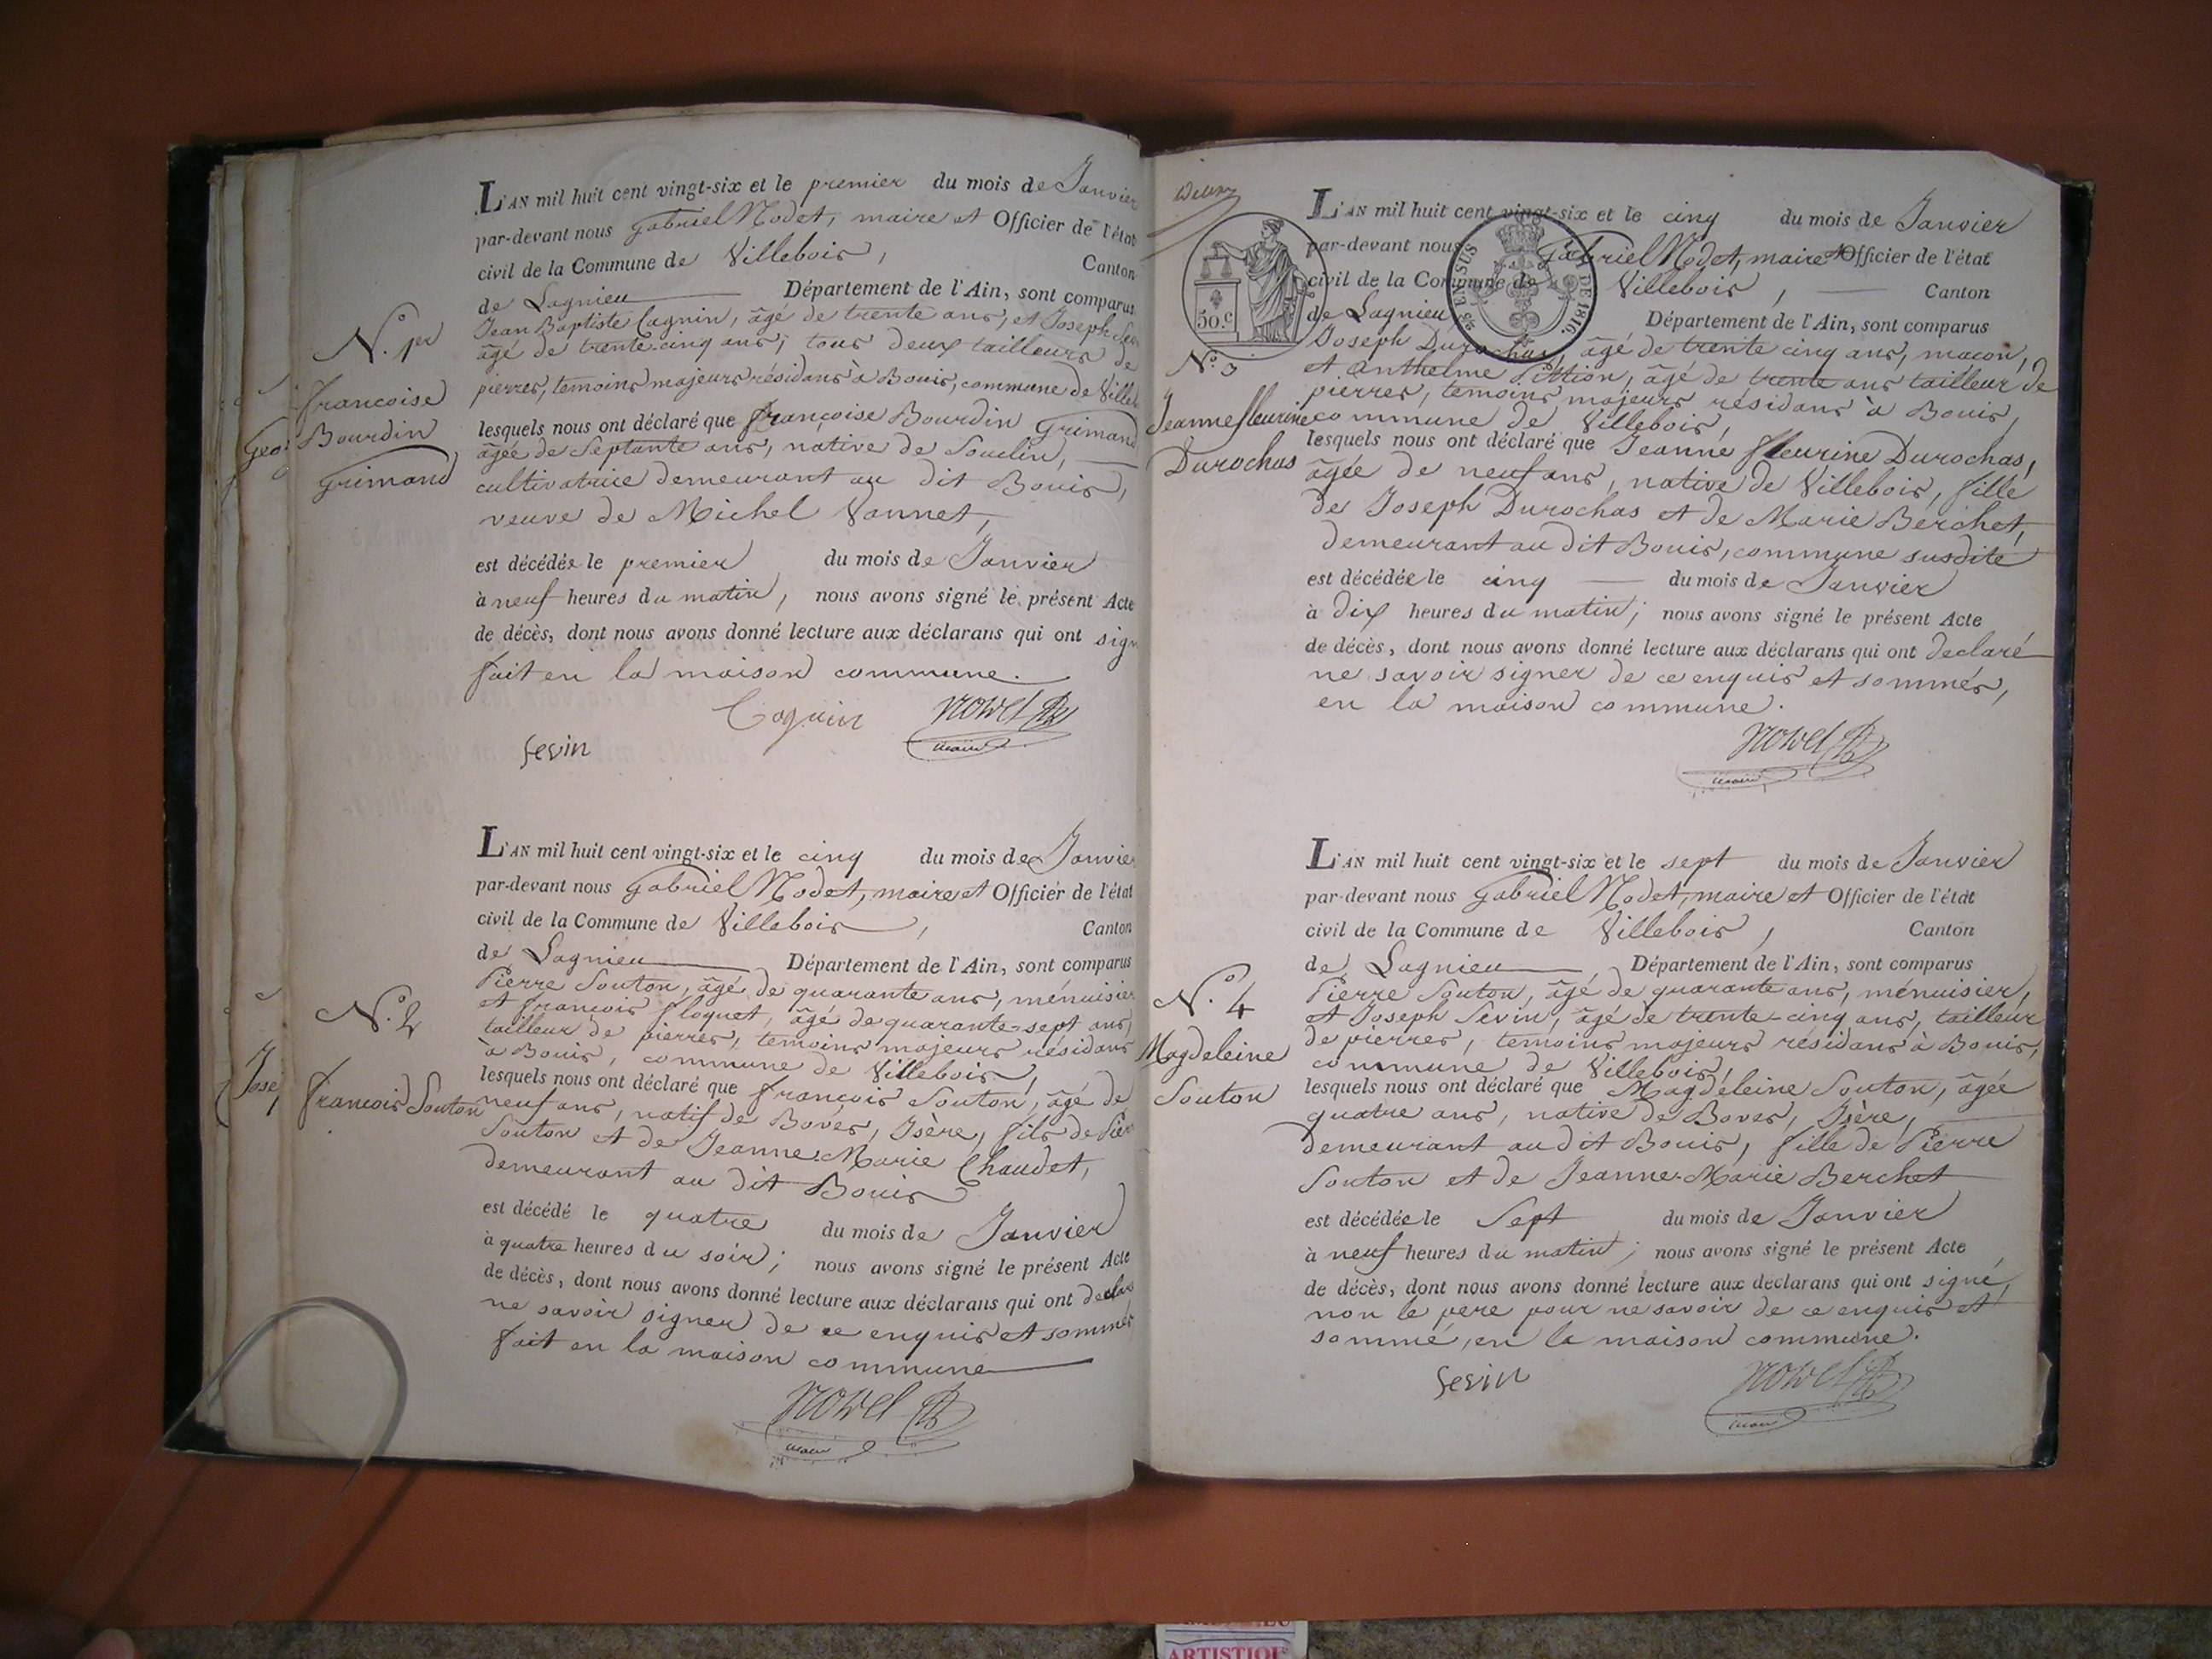 L'AN mil huit cent vingt-six et le premier du mois de Janvier
par-devant nous Gabriel Nodet, maire et Officier de l'état
civil de la Commune de Villebois, Canton
de Lagnieu Département de l'Ain, sont comparus
Jean Baptiste Cagnin, âgé de trente ans, et Joseph
âgé de trente-cinq ans, tous deux tailleurs de
pierres, temoins majeurs résidans à Bouis, commune de
lesquels nous ont déclaré que françoise Bourdin Grimand
âgée de Septante ans, native de Souclin,
cultivatrice demeurant au dit Bouis,
veuve de Michel Vannet,
est décédée le premier du mois de Janvier
à neuf heures du matin, nous avons signé le présent Acte
de décès, dont nous avons donné lecture aux déclarans qui ont sign
fait en la maison commune.
Cagnin
sevin
maire
N.º 1er
françoise
Bourdin
Grimand
L'AN mil huit cent vingt-six et le cinq du mois de Janvie
par-devant nous Gabriel Nodet, maire et Officier de l'état
civil de la Commune de Villebois, Canton
de Lagnieu Département de l'Ain, sont comparus
Pierre Souton, âgé de quarante ans, ménuisier
et francois floquet, âgé de quarante-sept ans,
tailleur de pierres, temoins majeurs résidans
à Bouis, commune de Villebois,
lesquels nous ont déclaré que francois Souton, âgé de
neuf ans, natif de Boves, Isère, fils de
Souton et de Jeanne Marie Chaudet,
demeurant au dit Bouis
est décédé le quatre du mois de Janvier
à quatre heures du soir; nous avons signé le présent Acte
de décès, dont nous avons donné lecture aux déclarans qui ont
ne savoir signer de ce enquis et sommés
fait en la maison commune
maire
N.º 2
francois Souton
Geo
Jose
50.c
EN SUS
DE 1816.
L'AN mil huit cent vingt-six et le cinq du mois de Janvier
par-devant nous Gabriel Nodet, maire et Officier de l'état
civil de la Commune de Villebois, Canton
de Lagnieu Département de l'Ain, sont comparus
Joseph Durochas, âgé de trente cinq ans, macon,
et Anthelme Pittion, âgé de trente ans tailleur de
pierres, temoins majeurs résidans à Bouis,
commune de Villebois,
lesquels nous ont déclaré que Jeanne fleurine Durochas,
âgée de neuf ans, native de Villebois, fille
de Joseph Durochas et de Marie Berchet,
demeurant au dit Bouis, commune susdite
est décédée le cinq du mois de Janvier
à dix heures du matin; nous avons signé le présent Acte
de décès, dont nous avons donné lecture aux déclarans qui ont declaré
ne savoir signer de ce enquis et sommés,
en la maison commune.
maire
N.º 3
Jeanne fleurine
Durochas
L'AN mil huit cent vingt-six et le sept du mois de Janvier
par-devant nous Gabriel Nodet, maire et Officier de l'état
civil de la Commune de Villebois, Canton
de Lagnieu Département de l'Ain, sont comparus
Pierre Souton, âgé de quarante ans, ménuisier,
et Joseph Sevin, âgé de trente-cinq ans, tailleur
de pierres, temoins majeurs résidans à Bouis,
commune de Villebois,
lesquels nous ont déclaré que Magdeleine Souton, âgée
quatre ans, native de Boves, Isère,
demeurant au dit Bouis, fille de Pierre
Souton et de Jeanne-Marie Berchet
est décédée le Sept du mois de Janvier
à neuf heures du matin; nous avons signé le présent Acte
de décès, dont nous avons donné lecture aux déclarans qui ont signé,
non le pere pour ne savoir de ce enquis et
sommé, en la maison commune.
sevin
maire
N.º 4
Magdeleine
Souton